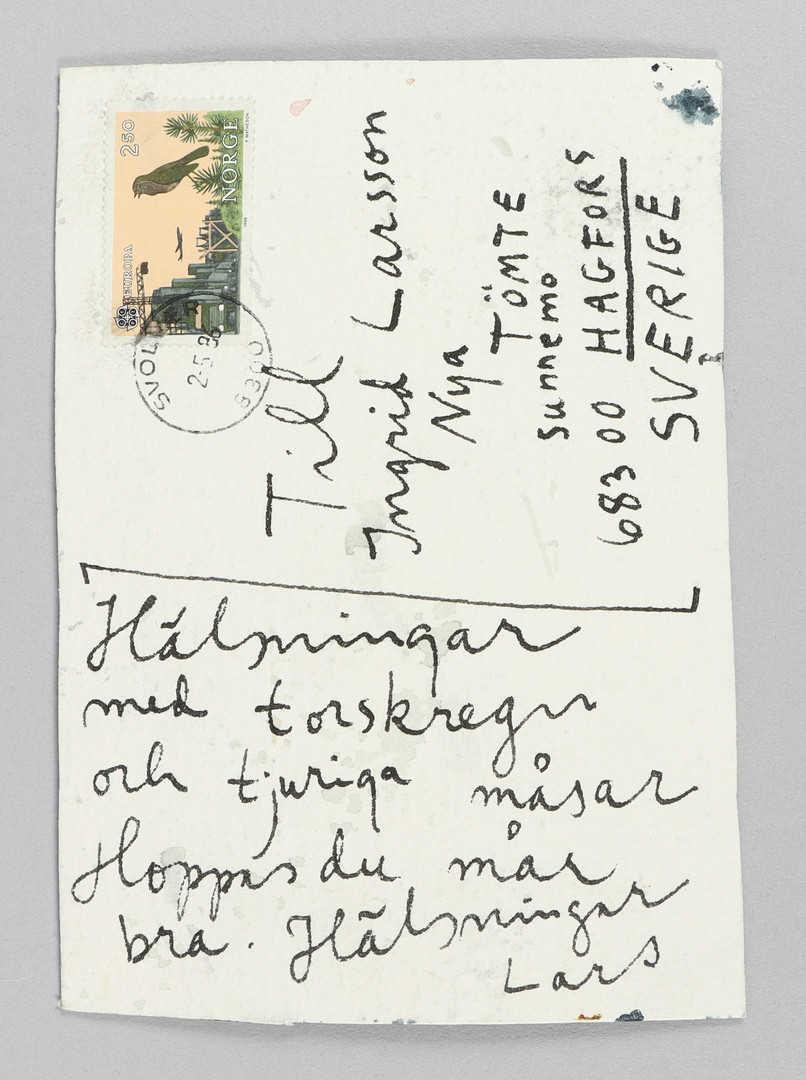 2.50
NORGE
EUROPA
SVOLVÆR
2-5.86
8300
Till
Ingrid Larsson
Nya
TÖMTE
Sunnemo
683 00 HAGFORS
SVERIGE
Hälsningar
med torskregn
och tjuriga måsar
Hoppas du mår
bra. Hälsningar
Lars